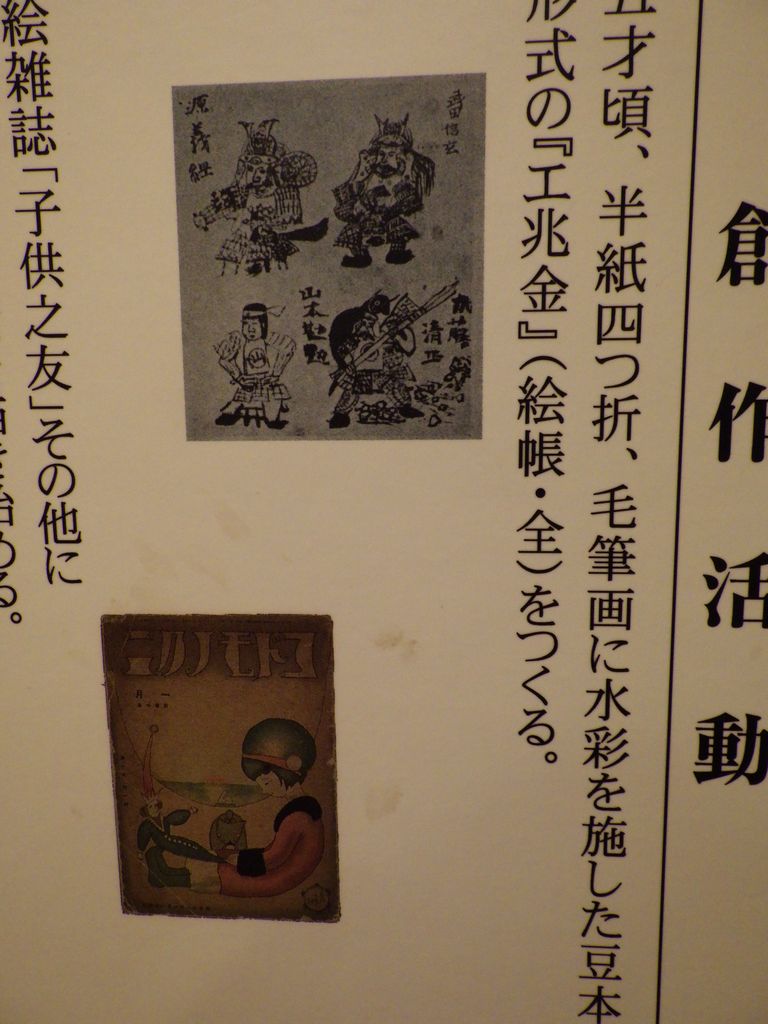 創作活動
五才頃、半紙四つ折、毛筆画に水彩を施した豆本
形式の『工兆金』（絵帳・全）をつくる。
武田信玄
源義経
加藤清正
山本勘助
コドモノクニ
一月
絵雑誌「子供之友」その他に